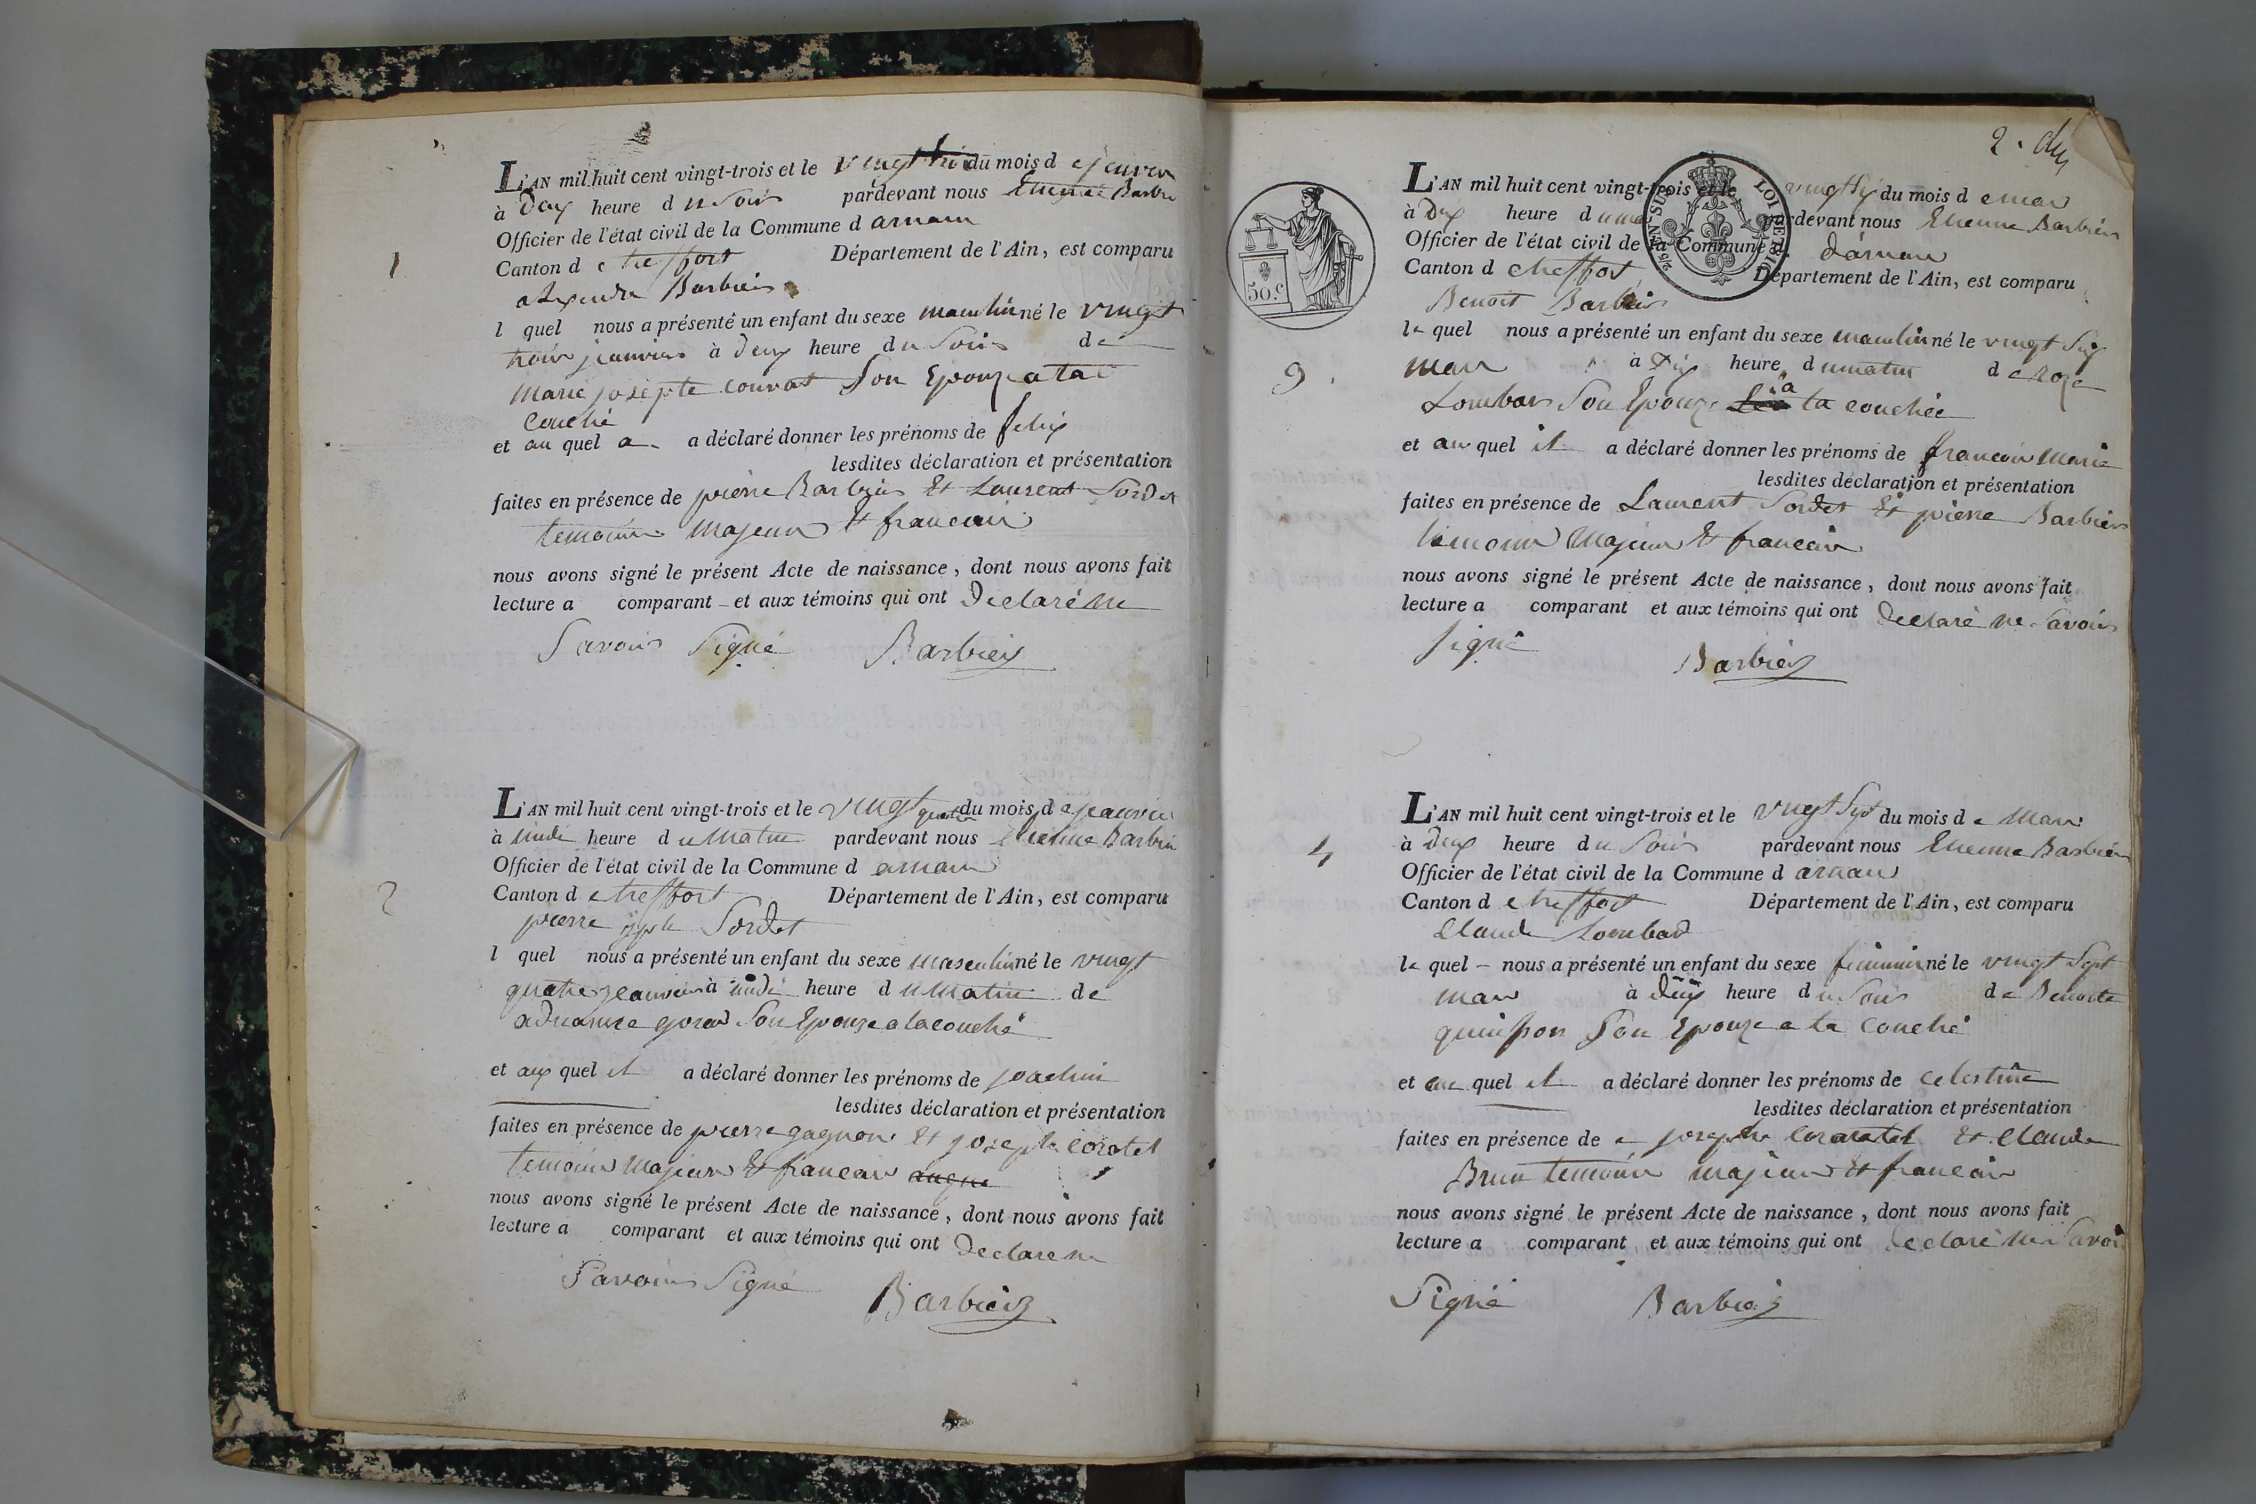 1
L'AN mil huit cent vingt-trois et le vingt troi du mois d e janvier
à deux heure d u Soir pardevant nous Etienne Barbier
Officier de l'état civil de la Commune d arnans
Canton d e treffort Département de l'Ain, est comparu
Barbier
l quel nous a présenté un enfant du sexe masculin né le vingt
trois janvier à deux heure du Soir de
Marie josepte convat Son Epouze a ta
couché
et au quel a a déclaré donner les prénoms de felix
lesdites déclaration et présentation
faites en présence de pierre Barbier Et Laurent Sordet
temoins majeur Et francais
nous avons signé le présent Acte de naissance, dont nous avons fait
lecture a comparant et aux témoins qui ont declaré ne
Savoir Signé Barbier
2
L'AN mil huit cent vingt-trois et le vingt quatre du mois d e janvier
à heure d u Matin pardevant nous Etienne Barbier
Officier de l'état civil de la Commune d arnans
Canton d e treffort Département de l'Ain, est comparu
pierre Sordet
l quel nous a présenté un enfant du sexe masculin né le vingt
quatre jeanvier à heure d u Matin de
Son Epouze a la couché
et aux quel il a déclaré donner les prénoms de joachin
lesdites déclaration et présentation
faites en présence de pierre gagnon Et joseph coratet
temoins Majeur Et francais
nous avons signé le présent Acte de naissance, dont nous avons fait
lecture a comparant et aux témoins qui ont declare ne
Savoir Signé Barbier
2.
50.c
LOI DE
3.
L'AN mil huit cent vingt-trois et le vingt Six du mois d e mars
à Dix heure d u ma pardevant nous Etienne Barbier
Officier de l'état civil de la Commune d d'arnans
Canton d e treffort Département de l'Ain, est comparu
Benoit Barbier
le quel nous a présenté un enfant du sexe masculin né le vingt Six
mars à Dix heure d u matin d e Roze
Lombar Son Epouze a ta couchée
et au quel il a déclaré donner les prénoms de francois Marie
lesdites déclaration et présentation
faites en présence de Laurent Sordet Et pierre Barbier
temoins Majeur Et francais
nous avons signé le présent Acte de naissance, dont nous avons fait
lecture a comparant et aux témoins qui ont declaré ne Savoir
signé
Barbier
4
L'AN mil huit cent vingt-trois et le vingt Sept du mois d e Mars
à deux heure d u Soir pardevant nous Etienne Barbier
Officier de l'état civil de la Commune d arnans
Canton d e treffort Département de l'Ain, est comparu
Claude Lombard
le quel nous a présenté un enfant du sexe feminin né le vingt Sept
mars à deux heure d u Soir de Benoite
quinsson Son Epouze a ta couché
et au quel il a déclaré donner les prénoms de celestine
lesdites déclaration et présentation
faites en présence de joseph coratet Et Claude
Brun temoins majeur Et francais
nous avons signé le présent Acte de naissance, dont nous avons fait
lecture a comparant et aux témoins qui ont declaré ne Savoir
Signé Barbier